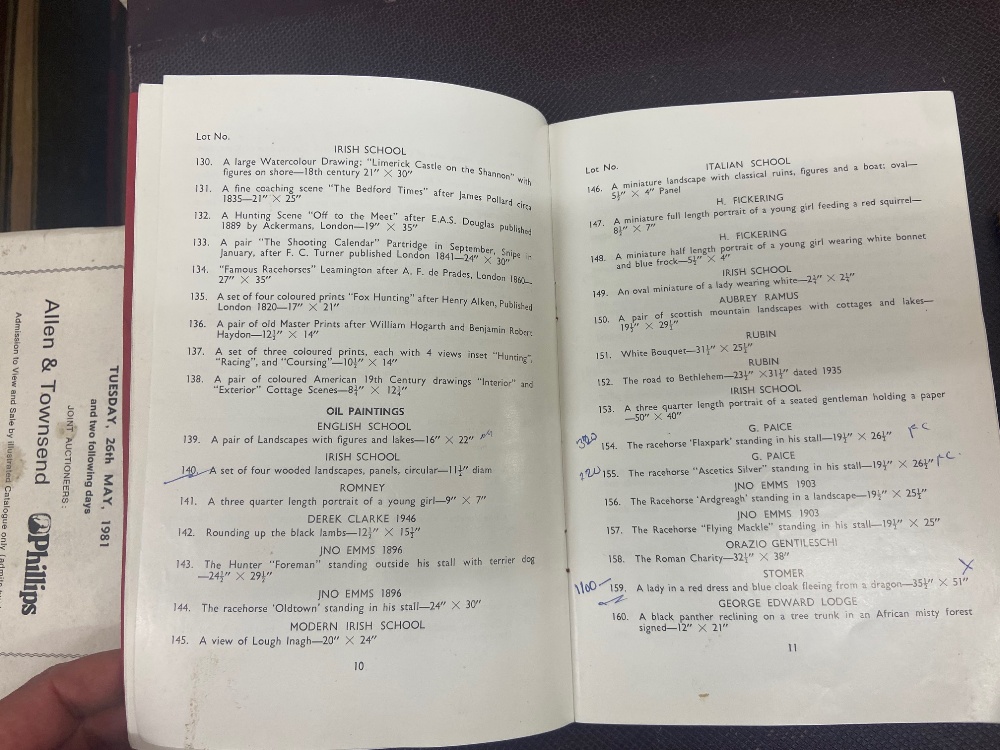 TUESDAY, 26th MAY, 1981
and two following days
JOINT AUCTIONEERS:
Allen & Townsend
Phillips
Admission to View and Sale by Illustrated Catalogue only
Lot No.
IRISH SCHOOL
130. A large Watercolour Drawing; "Limerick Castle on the Shannon" with
figures on shore—18th century 21" × 30"
131. A fine coaching scene "The Bedford Times" after James Pollard circa
1835—21" × 25"
132. A Hunting Scene "Off to the Meet" after E.A.S. Douglas published
1889 by Ackermans, London—19" × 35"
133. A pair "The Shooting Calendar" Partridge in September, Snipe in
January, after F. C. Turner published London 1841—24" × 30"
134. "Famous Racehorses" Leamington after A. F. de Prades, London 1860—
27" × 35"
135. A set of four coloured prints "Fox Hunting" after Henry Alken, Published
London 1820—17" × 21"
136. A pair of old Master Prints after William Hogarth and Benjamin Robert
Haydon—12½" × 14"
137. A set of three coloured prints, each with 4 views inset "Hunting",
"Racing", and "Coursing"—10½" × 14"
138. A pair of coloured American 19th Century drawings "Interior" and
"Exterior" Cottage Scenes—8½" × 12½"
OIL PAINTINGS
ENGLISH SCHOOL
139. A pair of Landscapes with figures and lakes—16" × 22"
IRISH SCHOOL
140. A set of four wooded landscapes, panels, circular—11½" diam
ROMNEY
141. A three quarter length portrait of a young girl—9" × 7"
DEREK CLARKE 1946
142. Rounding up the black lambs—12½" × 15½"
JNO EMMS 1896
143. The Hunter "Foreman" standing outside his stall with terrier dog
—24½" × 29½"
JNO EMMS 1896
144. The racehorse 'Oldtown' standing in his stall—24" × 30"
MODERN IRISH SCHOOL
145. A view of Lough Inagh—20" × 24"
10
Lot No.
ITALIAN SCHOOL
146. A miniature landscape with classical ruins, figures and a boat; oval—
5½" × 4" Panel
H. FICKERING
147. A miniature full length portrait of a young girl feeding a red squirrel—
8½" × 7"
H. FICKERING
148. A miniature half length portrait of a young girl wearing white bonnet
and blue frock—5½" × 4"
IRISH SCHOOL
149. An oval miniature of a lady wearing white—2½" × 2½"
AUBREY RAMUS
150. A pair of scottish mountain landscapes with cottages and lakes—
19½" × 29½"
RUBIN
151. White Bouquet—31½" × 25½"
RUBIN
152. The road to Bethlehem—23½" ×31½" dated 1935
IRISH SCHOOL
153. A three quarter length portrait of a seated gentleman holding a paper
—50" × 40"
G. PAICE
320 154. The racehorse 'Flaxpark' standing in his stall—19½" × 26½"
G. PAICE
220 155. The racehorse "Ascetics Silver" standing in his stall—19½" × 26½"
JNO EMMS 1903
156. The Racehorse 'Ardgreagh' standing in a landscape—19½" × 25½"
JNO EMMS 1903
157. The Racehorse "Flying Mackle" standing in his stall—19½" × 25"
ORAZIO GENTILESCHI
158. The Roman Charity—32½" × 38"
STOMER
1100- 159. A lady in a red dress and blue cloak fleeing from a dragon—35½" × 51" X
GEORGE EDWARD LODGE
160. A black panther reclining on a tree trunk in an African misty forest
signed—12" × 21"
11